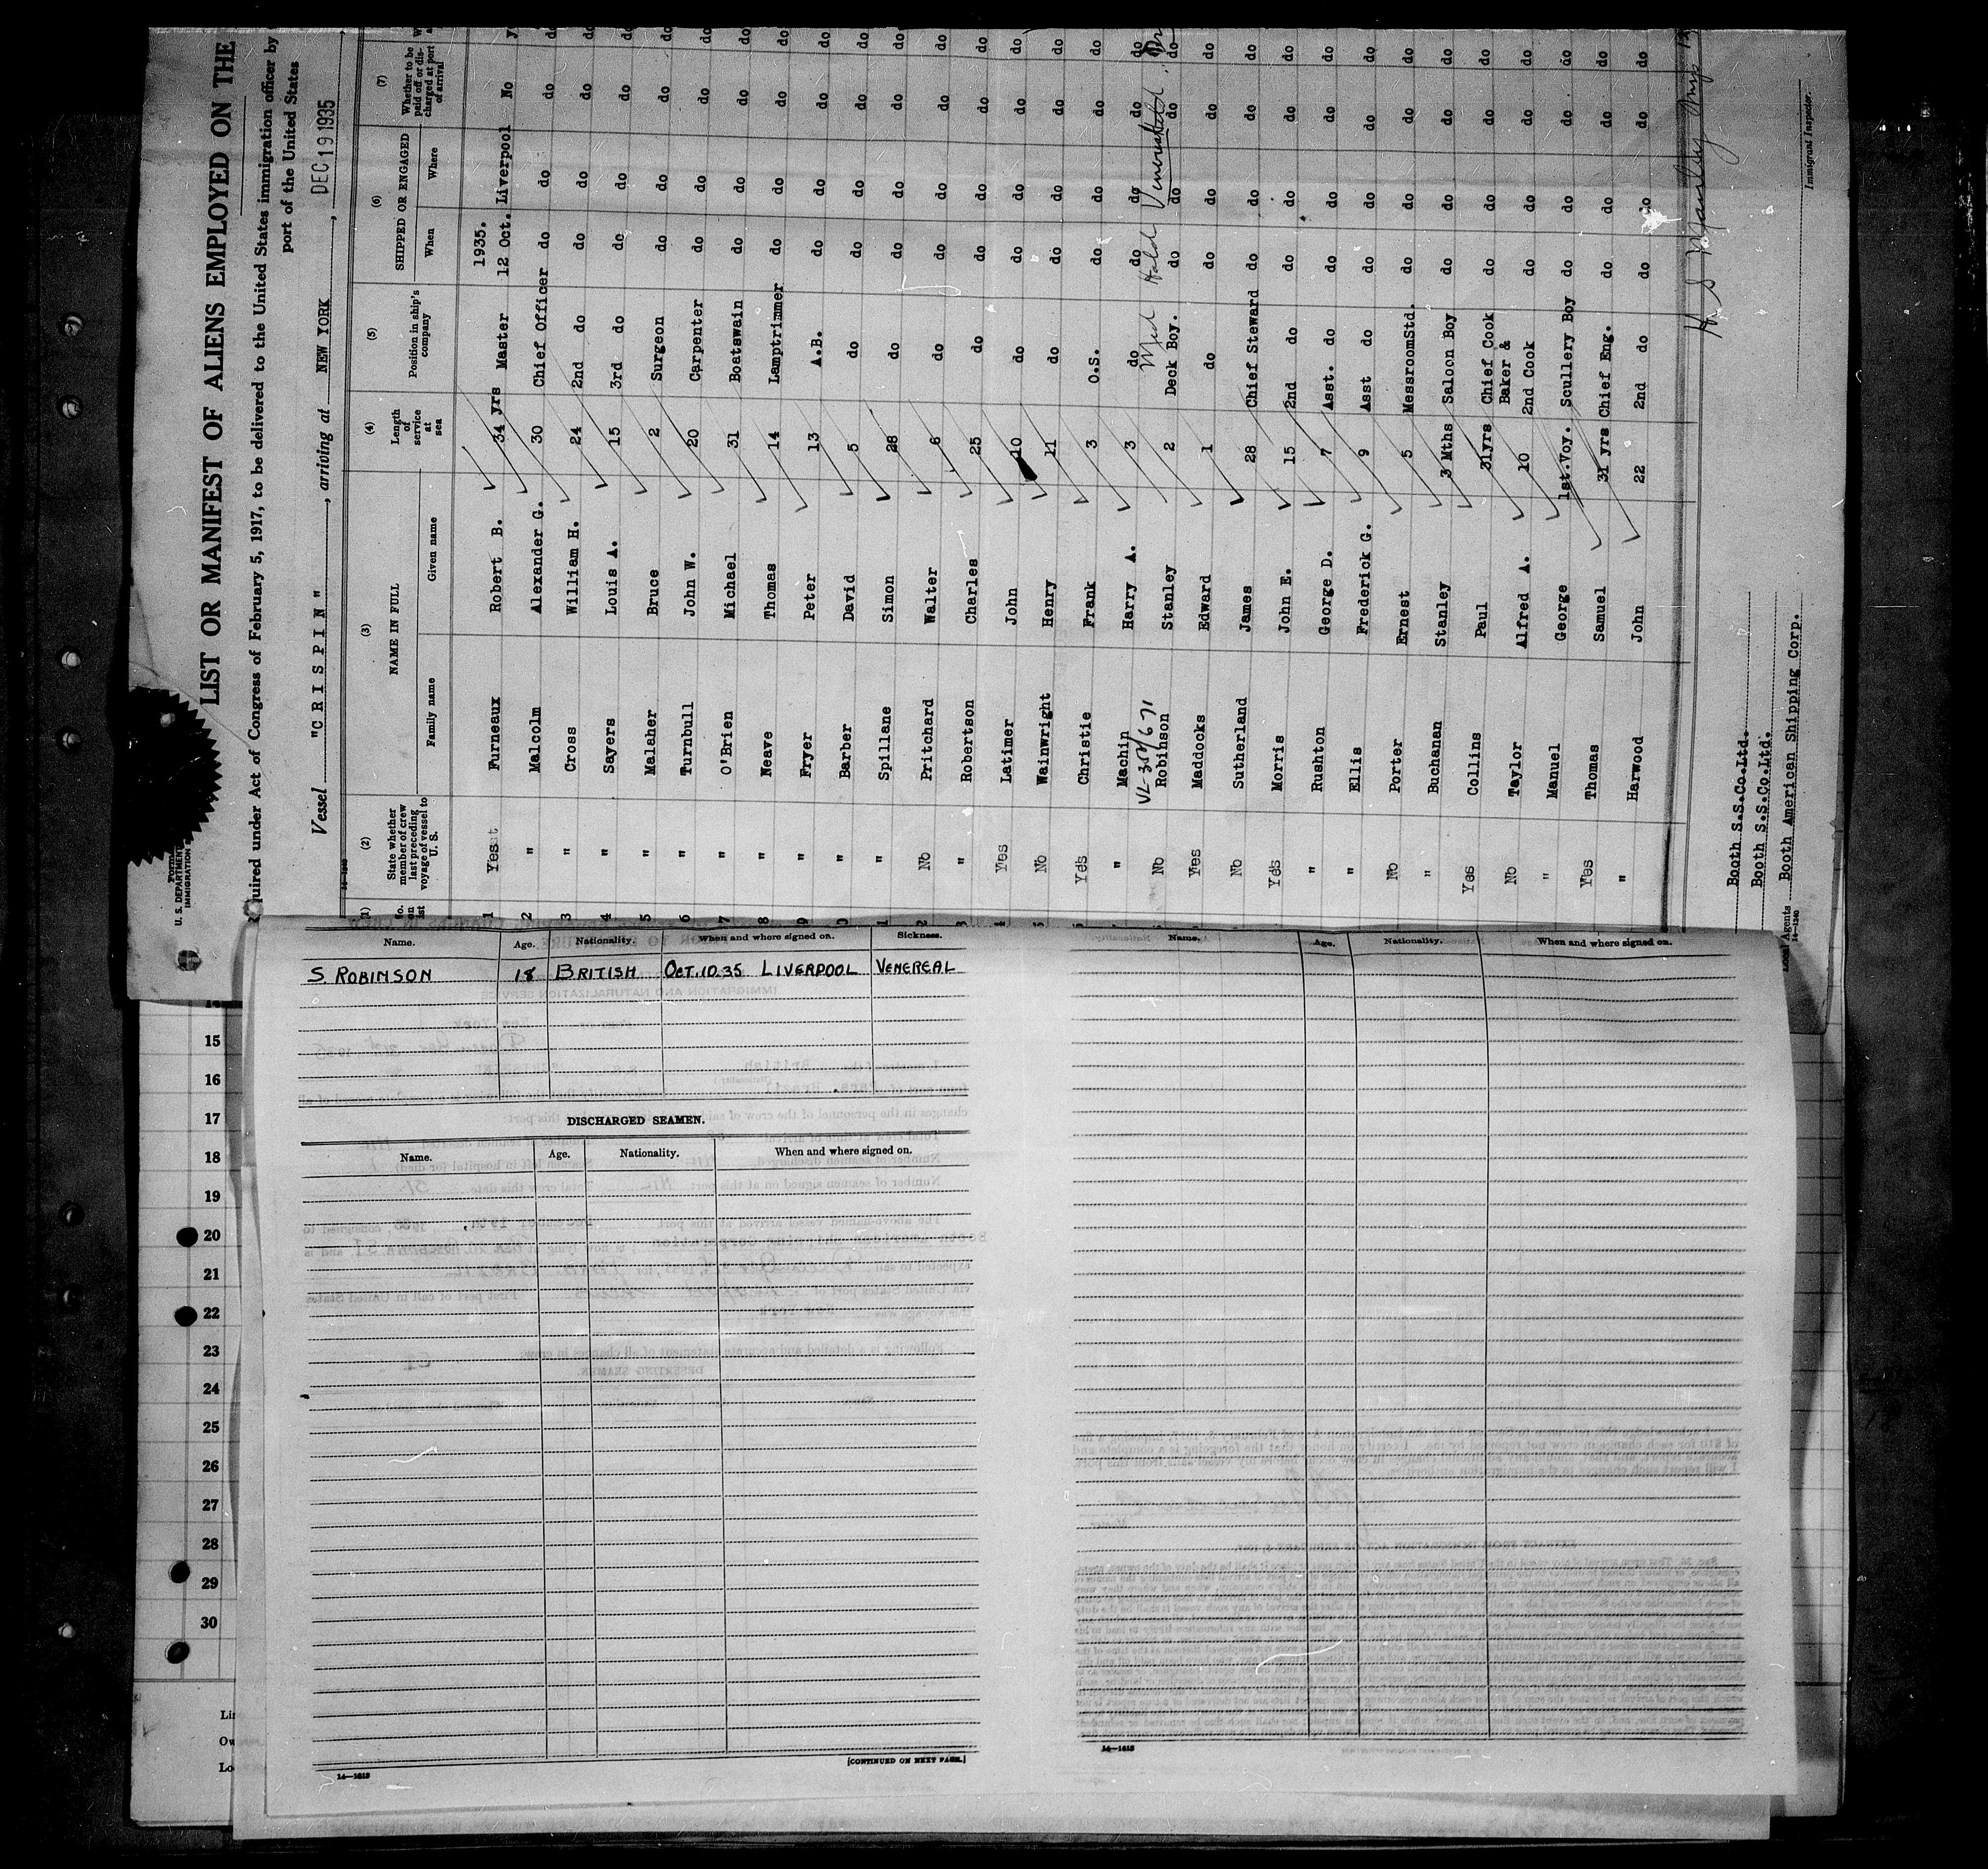 LIST OR MANIFEST OF ALIENS EMPLOYED ON THE
quired under Act of Congress of February 5, 1917, to be delivered to the United States immigration officer by
port of the United States
U. S. DEPARTMENT
IMMIGRATION
Vessel "CRISPIN", arriving at NEW YORK, DEC 19 1935
(1) (2) (3) (4) (5) (6) (7)
No. on list
State whether member of crew last preceding voyage of vessel to U. S.
NAME IN FULL
Family name Given name
Length of service at sea
Position in ship's company
SHIPPED OR ENGAGED
When Where
Whether to be paid off or discharged at port of arrival
1935.
1 Yes Furneaux Robert B. 34 yrs Master 12 Oct. Liverpool No
2 " Malcolm Alexander G. 30 Chief Officer do do do do
3 " Cross William H. 24 2nd do do do do do
4 " Sayers Louis A. 15 3rd do do do do do
5 " Malaher Bruce 2 Surgeon do do do do
6 " Turnbull John W. 20 Carpenter do do do do
7 " O'Brien Michael 31 Boatswain do do do do
8 " Neave Thomas 14 Lamptrimmer do do do do
9 " Fryer Peter 13 A.B. do do do do
0 " Barber David 5 do do do do do
1 " Spillane Simon 28 do do do do do
2 No Pritchard Walter 6 do do do do do
3 " Robertson Charles 25 do do do do do
4 Yes Latimer John 10 do do do do do
No Wainwright Henry 11 do do do do do
Yes Christie Frank 3 O.S. do do do do
" Machin Harry A. 3 do do do do do
Med Hold Venereal
No Robinson Stanley 2 Deck Boy. do do do do
Yes Maddocks Edward 1 do do do do do
No Sutherland James 28 Chief Steward do do do do
Yes Morris John E. 15 2nd do do do do do
" Rushton George D. 7 Asst. do do do do do
" Ellis Frederick G. 9 Asst do do do do do
No Porter Ernest 5 MessroomStd. do do do do
" Buchanan Stanley 3 Mths Saloon Boy do do do do
Yes Collins Paul 31yrs Chief Cook do do do do
Baker &
No Taylor Alfred A. 10 2nd Cook do do do do
" Manuel George 1st.Voy. Scullery Boy do do do do
Yes Thomas Samuel 31 yrs Chief Eng. do do do do
" Harwood John 22 2nd do do do do do
Immigrant Inspector.
Booth S.S.Co.Ltd.
Booth S.S.Co.Ltd.
Agents Booth American Shipping Corp.
14—1240
Name. Age. Nationality. When and where signed on. Sickness.
S. ROBINSON 18 BRITISH OCT.10.35 LIVERPOOL VENEREAL
DISCHARGED SEAMEN.
Name. Age. Nationality. When and where signed on.
[CONTINUED ON NEXT PAGE.]
14—1613
Name. Age. Nationality. When and where signed on.
14—1613
14
15
16
17
18
19
20
21
22
23
24
25
26
27
28
29
30